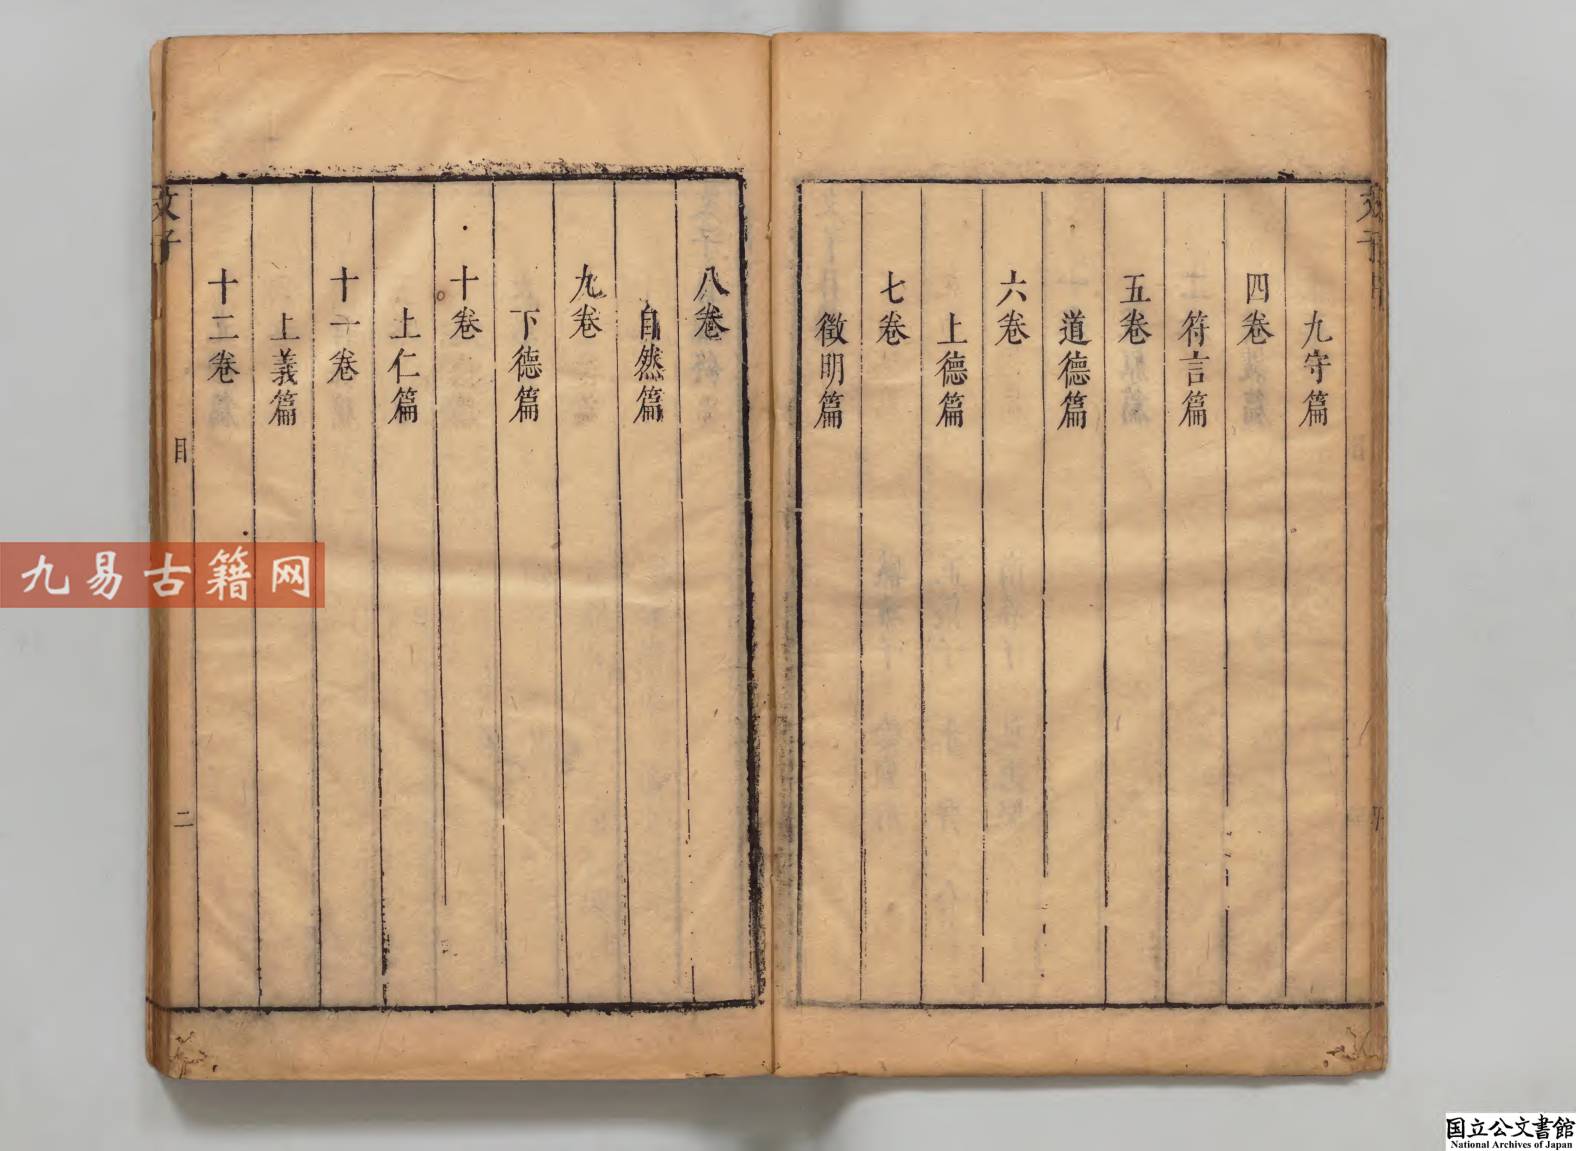 九守篇
四卷
符言篇
五卷
道德篇
六卷
上德篇
七卷
徵明篇
八卷
自然篇
九卷
下德篇
十卷
上仁篇
十一卷
上義篇
十二卷
文子
目
二
九易古籍网
国立公文書館
National Archives of Japan